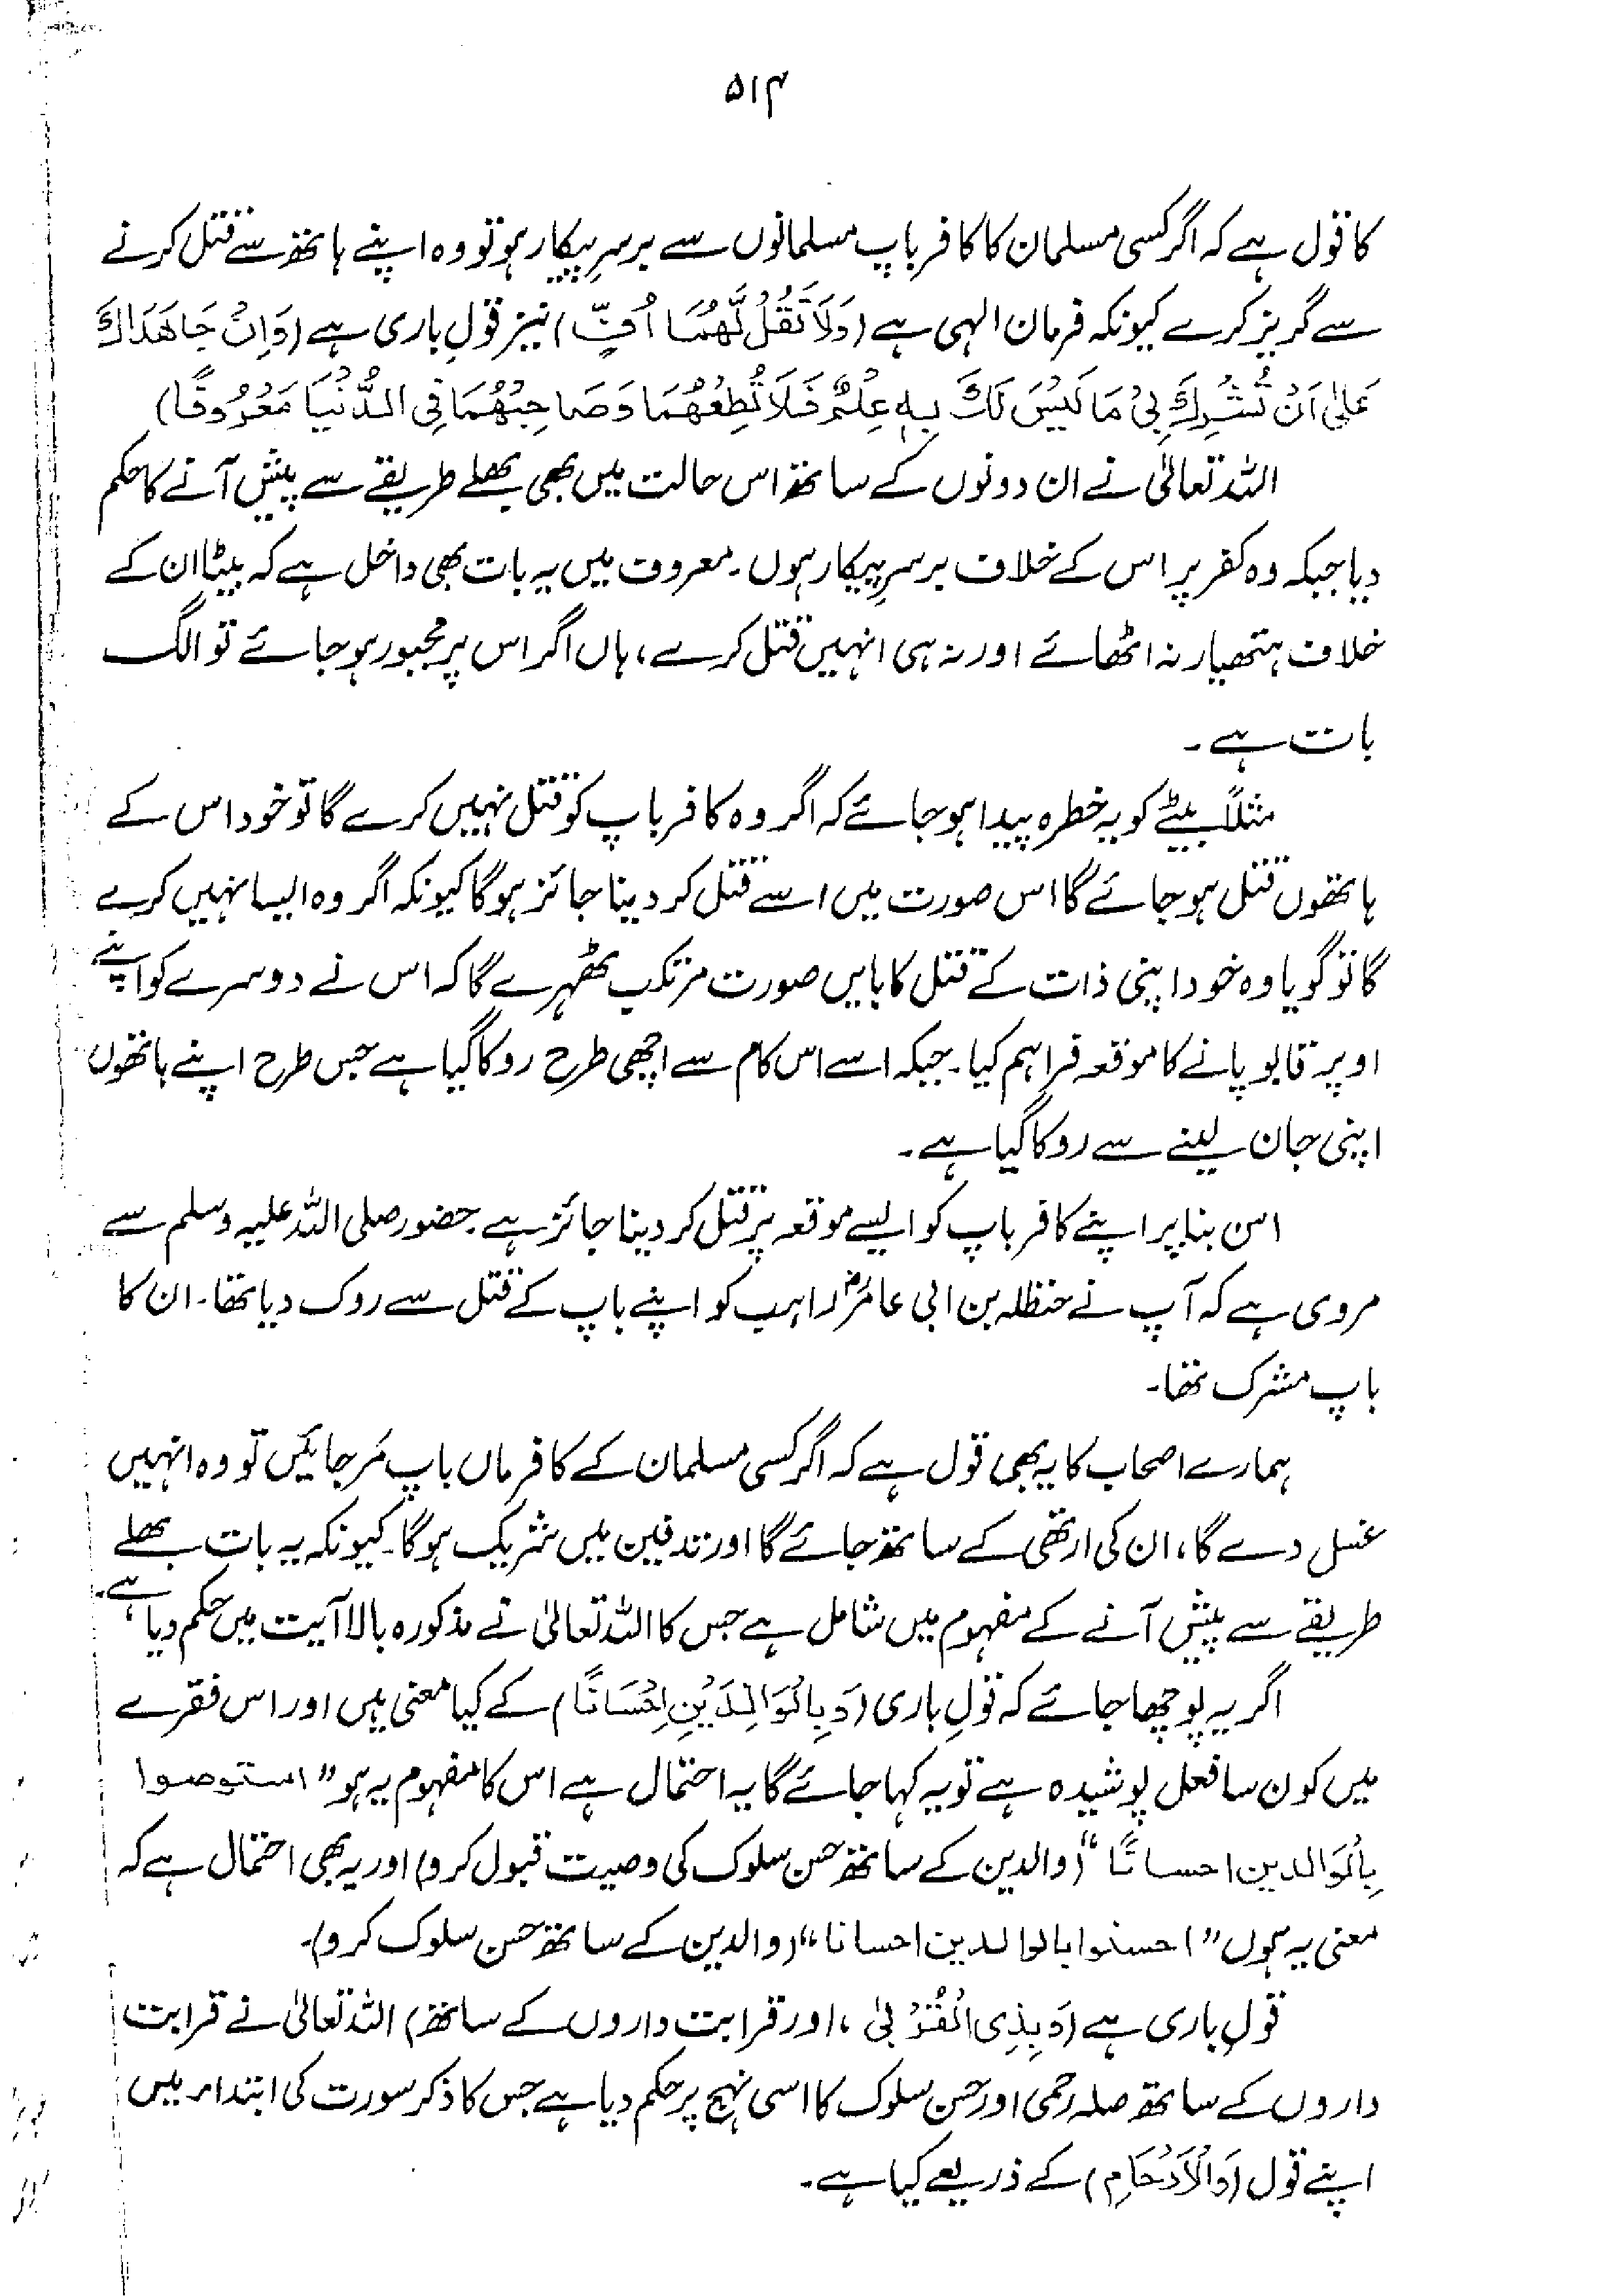 ۵۱۴
کا قول ہے کہ اگر کسی مسلمان کا کافر باپ مسلمانوں سے برسرِپیکار ہو تو وہ اپنے ہاتھ سے قتل کرنے
سے گریز کرے کیونکہ فرمان الٰہی ہے (وَلَا تَقُلْ لَّهُمَا اُفٍّ) نیز قولِ باری ہے (وَاِنْ جَاهَدَاكَ
عَلىٰ اَنْ تُشْرِكَ بِىْ مَا لَيْسَ لَكَ بِهٖ عِلْمٌ فَلَا تُطِعْهُمَا وَصَاحِبْهُمَا فِى الدُّنْيَا مَعْرُوْفًا)
اللہ تعالیٰ نے ان دونوں کے ساتھ اس حالت میں بھی بھلے طریقے سے پیش آنے کا حکم
دیا جبکہ وہ کفر پر اس کے خلاف برسرِپیکار ہوں۔ معروف میں یہ بات بھی داخل ہے کہ بیٹا ان کے
خلاف ہتھیار نہ اٹھائے اور نہ ہی انہیں قتل کرے، ہاں اگر اس پر مجبور ہو جائے تو الگ
بات ہے۔
مثلاً بیٹے کو یہ خطرہ پیدا ہو جائے کہ اگر وہ کافر باپ کو قتل نہیں کرے گا تو خود اس کے
ہاتھوں قتل ہو جائے گا اس صورت میں اسے قتل کر دینا جائز ہو گا کیونکہ اگر وہ ایسا نہیں کرے
گا تو گویا وہ خود اپنی ذات کے قتل کا بایں صورت مرتکب ٹھہرے گا کہ اس نے دوسرے کو اپنے
اوپر قابو پانے کا موقعہ فراہم کیا۔ جبکہ اسے اس کام سے اچھی طرح روکا گیا ہے جس طرح اپنے ہاتھوں
اپنی جان لینے سے روکا گیا ہے۔
اس بنا پر اپنے کافر باپ کو ایسے موقعہ پر قتل کر دینا جائز ہے۔ حضور صلی اللہ علیہ وسلم سے
مروی ہے کہ آپ نے حنظلہ بن ابی عامرؓ راہب کو اپنے باپ کے قتل سے روک دیا تھا۔ ان کا
باپ مشرک تھا۔
ہمارے اصحاب کا یہ بھی قول ہے کہ اگر کسی مسلمان کے کافر ماں باپ مَر جائیں تو وہ انہیں
غسل دے گا، ان کی ارتھی کے ساتھ جائے گا اور تدفین میں شریک ہو گا۔ کیونکہ یہ بات بھلے
طریقے سے پیش آنے کے مفہوم میں شامل ہے جس کا اللہ تعالیٰ نے مذکورہ بالا آیت میں حکم دیا ہے۔
اگر یہ پوچھا جائے کہ قولِ باری (وَبِالْوَالِدَيْنِ اِحْسَانًا) کے کیا معنی ہیں اور اس فقرے
میں کون سا فعل پوشیدہ ہے تو یہ کہا جائے گا یہ احتمال ہے اس کا مفہوم یہ ہو "استوصوا
بِالْوَالدین احسانًا" (والدین کے ساتھ حسن سلوک کی وصیت قبول کرو) اور یہ بھی احتمال ہے کہ
معنی یہ ہوں "احسنوا بالوالدین احسانا" (والدین کے ساتھ حسن سلوک کرو)۔
قولِ باری ہے (وَبِذِى الْقُرْبىٰ، اور قرابت داروں کے ساتھ) اللہ تعالیٰ نے قرابت
داروں کے ساتھ صلہ رحمی اور حسنِ سلوک کا اسی نہج پر حکم دیا ہے جس کا ذکر سورت کی ابتداء میں
اپنے قول (وَالْاَرْحَامِ) کے ذریعے کیا ہے۔